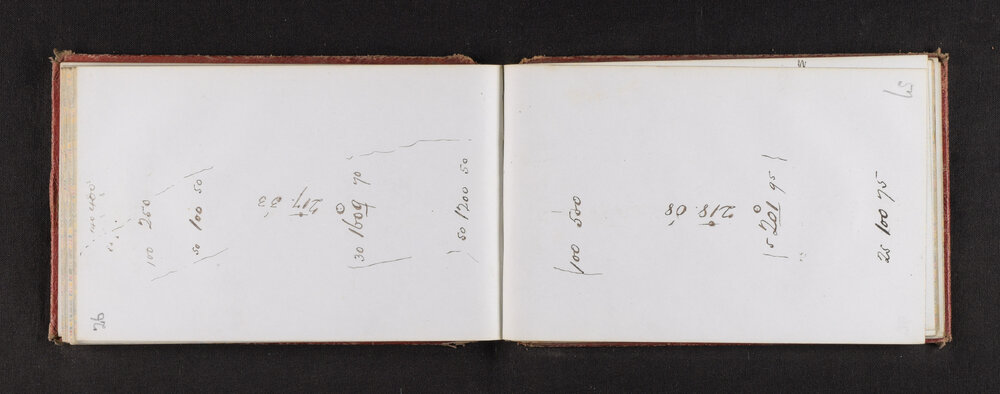 26
100 250
50 100 50
217.03
30 1609 70
50 1200 50
100 500
218.08
5 201 95
25 100 75